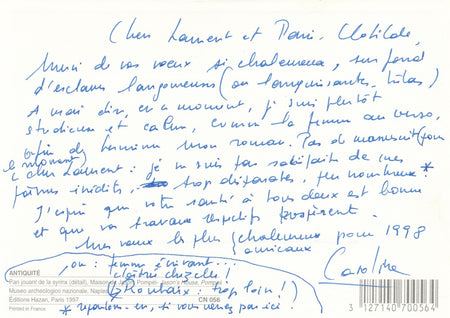 Chers Laurent et Marie-Clotilde,
Merci de vos vœux si chaleureux, sur fond
d'esclaves langoureuses (ou languissantes, hélas)
A moi dire, en ce moment, je suis plutôt
studieuse et calme, comme la femme au verso,
afin de terminer mon roman. Pas de manuscrit (pour
le moment)
cher Laurent : je ne suis pas satisfaite de mes
poèmes inédits, trop disparates, peu nombreux *
J'espère que votre santé à tous deux est bonne
et que vos travaux respectifs prospèrent.
Mes vœux les plus chaleureux pour 1998
amicaux
Caroline
ou : femme écrivant...
cloîtrée chez elle !
(Roubaix : trop loin !)
* reparlons-en, si vous venez par ici.
ANTIQUITÉ
Pan jouant de la syrinx (détail), Maison de Jason, Pompéi. Jason's House, Pompeii
Museo archeologico nazionale, Naples
Éditions Hazan, Paris 1997
CN 056
Printed in France
3 127140 700564